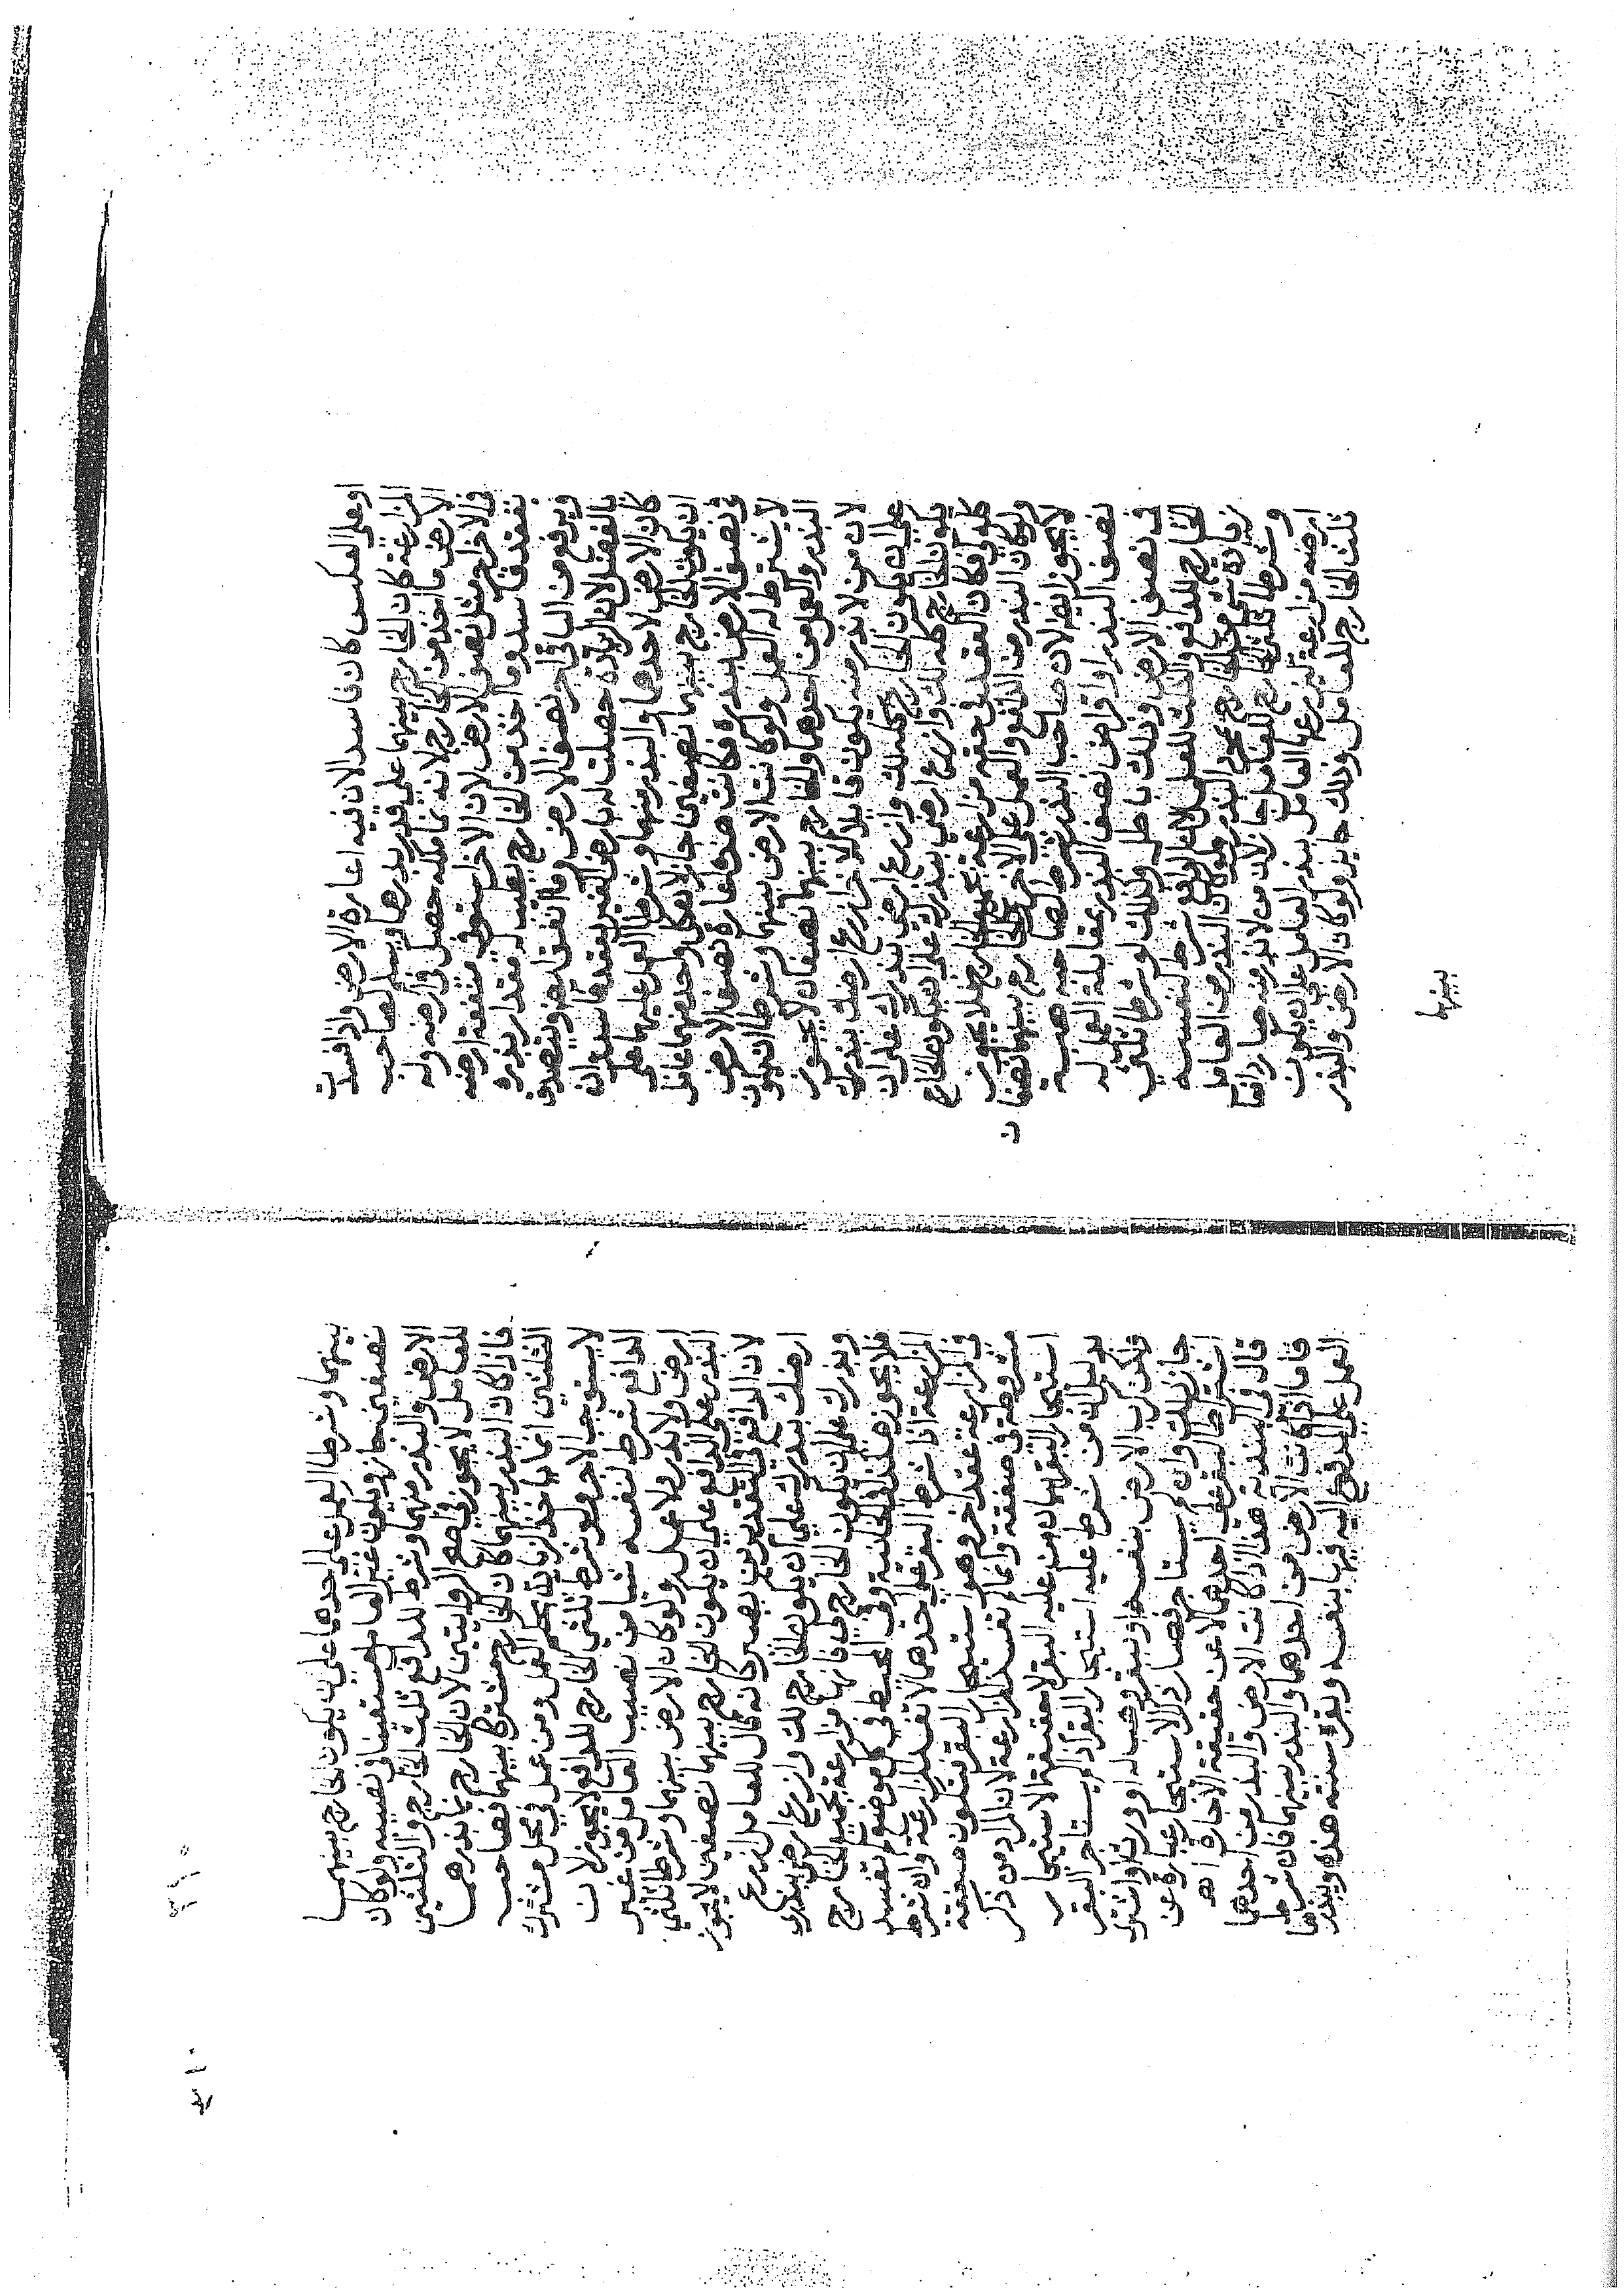 او علي العكس كان فاسدا لان فيه اعارة الارض واذا فسدت
المزارعة كان الخارج بينهما علي قدر بذرهما ويسلم لصاحب
الارض ما اخذ من الخارج لانه نما ملكه حصل في ارضه وله
في الاخر اجر مثل نصف الارض لان الاخر استوفي منفعة ارضه
بعقد فاسد وما اخذ من الخارج يطيب له مقدار بذره
ويرفع من الباقي اجر نصف الارض وما انفق ايضا ويتصدق
بالفضل لان الزيادة حصلت له بارض الغير بعقد فاسد وان
كان الارض لاحدهما والبذر منهما وشرطا العمل عليهما علي
ان يكون الخارج بينهما نصفين جاز لان كل واحد منهما عامل
في نصف الارض ببذره فكانت هذه اعارة نصف الارض
لا بشرط له العمل ولو كانت الارض بينهما وشرطا ان يكون
البذر والعمل من احدهما والخارج بينهما نصفان لا يجوز
لان من لا بذر منه يكون قايلا للاخر ازرع ارضك ببذرك
علي ان يكون الخارج كله لك وازرع ارضي ببذرك علي ان
يكون الخارج كله لك وازرع ارضي ببذرك علي ان يكون الخارج
كله لي فكان العقد في حقه مزارعة بجميع الخارج فلا يجوز
ولو كان البذر من الدافع والعمل علي الاخر والخارج بينهما نصفان
لا يجوز ايضا لان صاحب البذر شرط لصاحبه هبة
نصف البذر او اقراض نصف البذر بمقابلة العمل له
في نصف الارض وذلك باطل وكذلك لو شرطا ثلثي
الخارج للدافع والثلث للعامل لان الدافع شرط لنفسه
زيادة شي من الخارج بمجرد البذر ولو كان البذر من العامل
وشرطا ثلثي الخارج للعامل جاز لان من لا بذر منه صار دافعا
ارضه مزارعة ليزرعها العامل ببذر العامل علي ان يكون
ثلث الخارج للعامل وذلك جايز ولو كان الارض والبذر
بينهما
بينهما وشرطا العمل علي احدهما علي ان يكون الخارج بينهما
نصفين جاز ويكون غير العامل مستعينا في نصيبه ولو كان
الارض والبذر منهما وشرط للدافع ثلث الخارج والثلثين
للعامل لا يجوز في اصح الروايتين لان الخارج نما بذرهما
فاذا كان البذر بينهما كان الخارج مشتركا بينهما فصاحب
الثلثين انما ياخذ الزيادة بحكم العمل ومن عمل في محل مشترك
لا يستوجب الاجر ولو شرط ثلثي الخارج للدافع لا يجوز لان
الدافع شرط لنفسه شيا من نصيب العامل من غير
ارض ولا بذر ولا عمل ولو كان الارض بينهما وشرطا ثلثي
البذر علي الدافع علي ان يكون الخارج بينهما نصفين لا يجوز
لان الدافع في التقدير يصير كانه قال للعامل ازرع
ارضك ببذرك علي ان يكون الخارج لك وازرع ارضي ببذري
وبذرك علي ان يكون الخارج لي فانها مزارعة بجميع الخارج
فلا يجوز هذا في الخانية وفي المحيط في كل موضع لم تفسد
المزارعة اذا شرط البقر علي احدهما لا تفسد المزارعة وان شرط
في المزارعة عقد اخر وهو استيجار البقر فتكون صفقة
مشروطة في صفقة وانما لم تفسد المزارعة لان المراد من ذكر
استيجار البقر بيان من عليه البقر لا حقيقة الاستيجار
بدليل ان من شرط عليه استيجار البقر اذا لم يستاجر البقر
ولكن كرب الارض بنفسه او ببقر وهب له او ورث او اشتراه
جاز ذلك وان لم يستاجر فصار ذكر الاستيجار عبارة عن
اشتراط البقر علي احدهما لا عن حقيقة الاجارة اهـ
قال في الهندية هذا اذا كانت الارض والبذر من احدهما
فاما اذا كانت الارض من احدهما والبذر بينهما فان شرطا
العمل علي المدفوع اليه فيها بنفسه وبقره سنته هذه وببذر